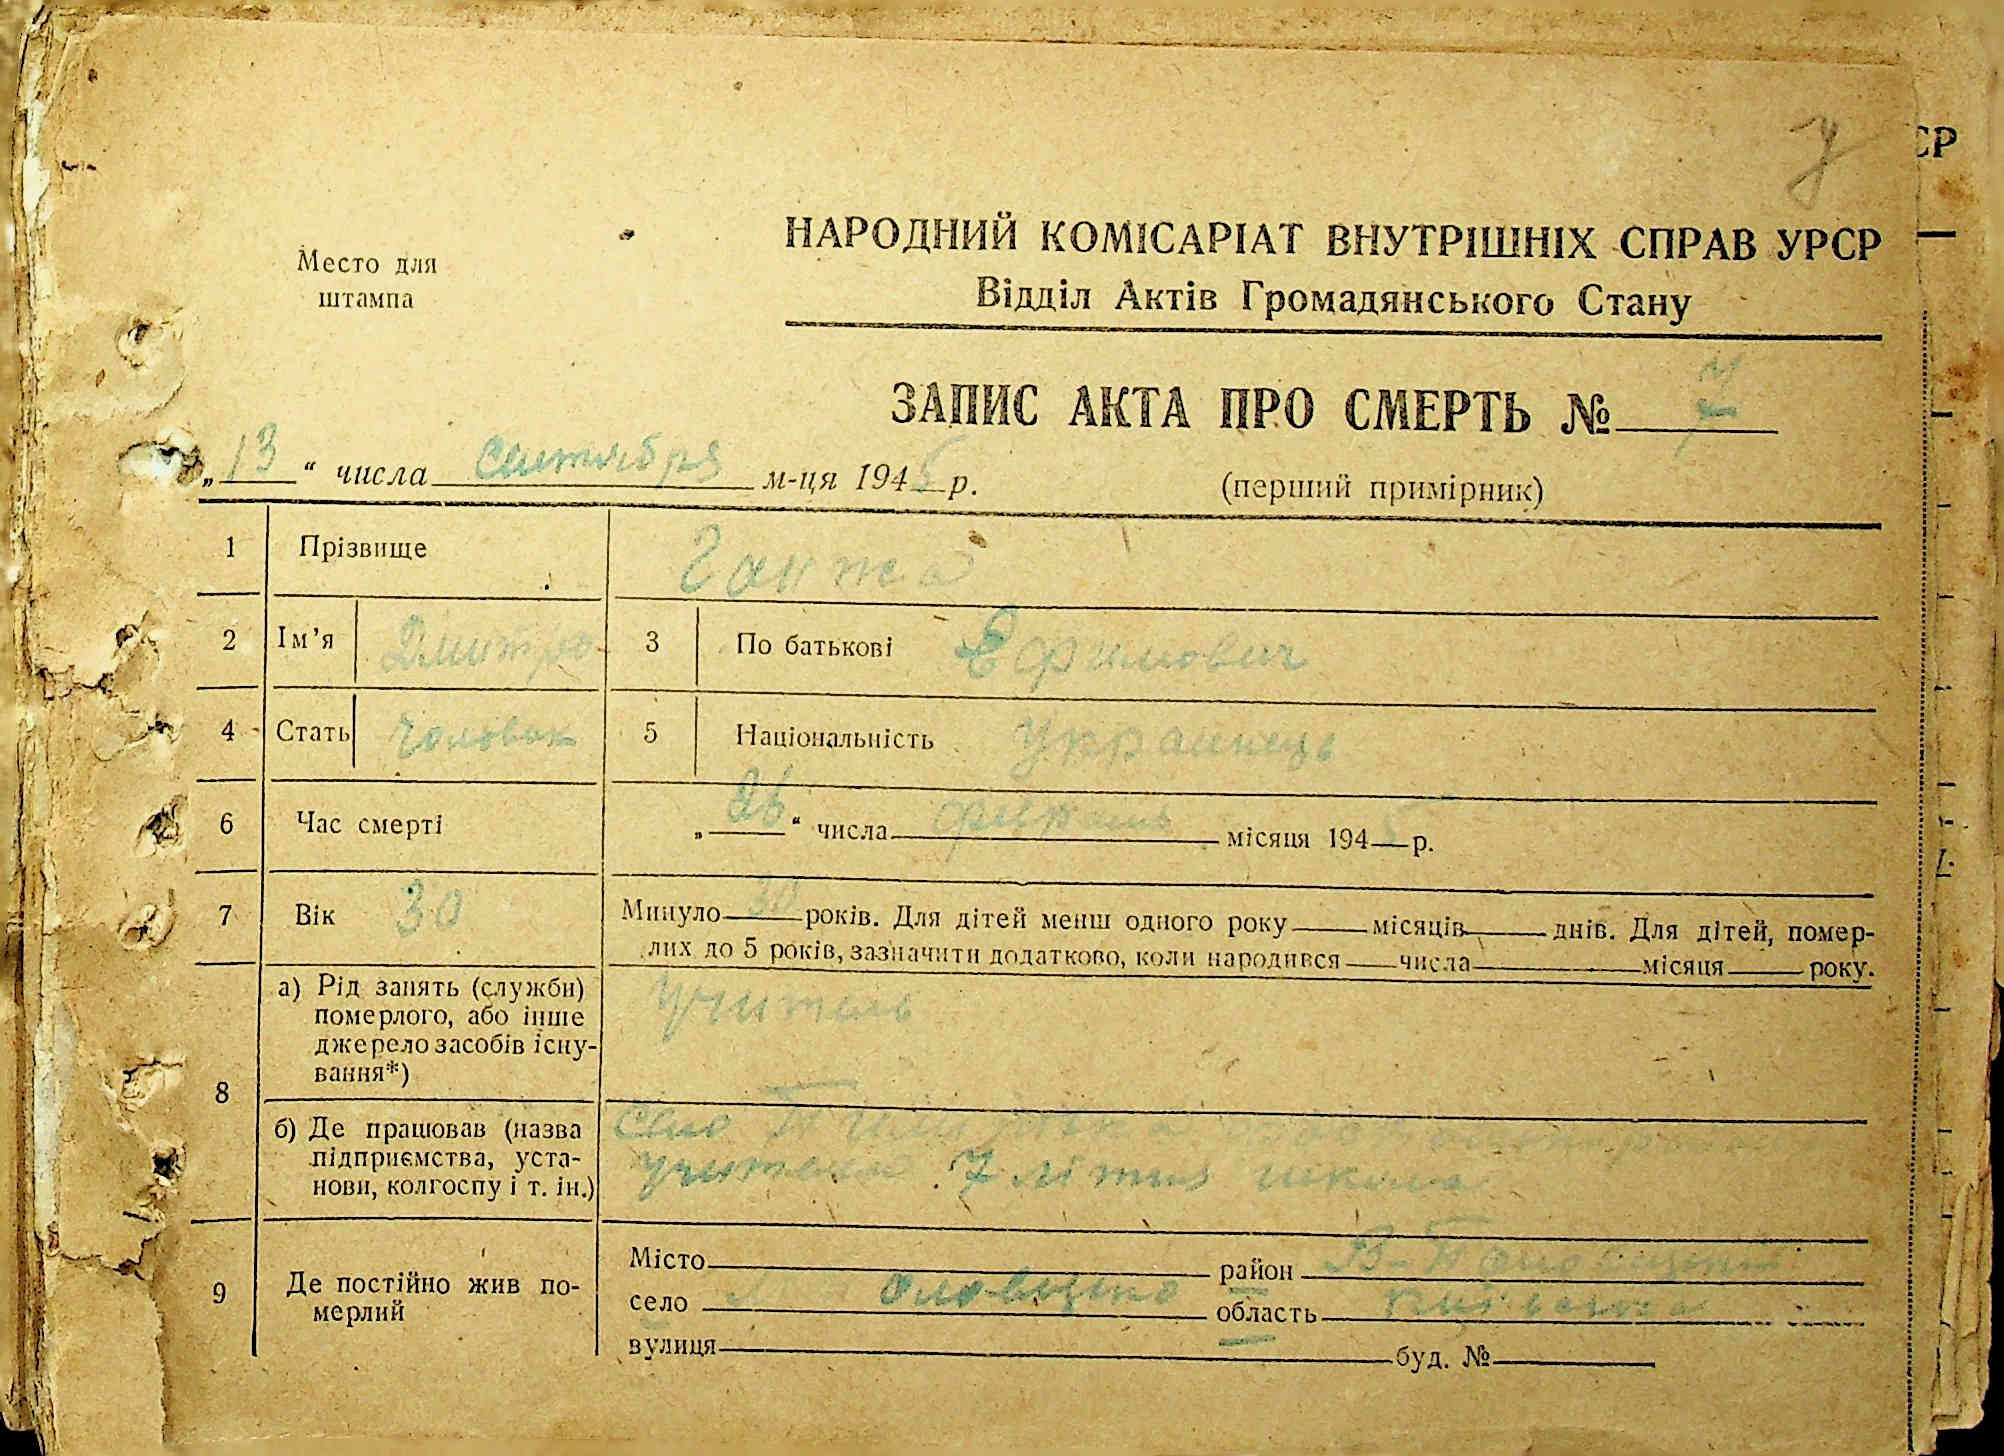 у
СР
НАРОДНИЙ КОМІСАРІАТ ВНУТРІШНІХ СПРАВ УРСР
Место для
штампа
Відділ Актів Громадянського Стану
ЗАПИС АКТА ПРО СМЕРТЬ № 7
„13“ числа сентября м-ця 1945 р.
(перший примірник)
1 Прізвище Ганжа
2 Ім’я Дмитро 3 По батькові Ефимович
4 Стать Чоловік 5 Національність Українець
6 Час смерті „26“ числа місяця 1945 р.
7 Вік 30 Минуло 30 років. Для дітей менш одного року місяців днів. Для дітей, помер-
лих до 5 років, зазначити додатково, коли народився числа місяця року.
8 а) Рід занять (служби) учитель
померлого, або інше
джерело засобів існу-
вання*)
б) Де працював (назва село
підприємства, уста- учитель 7 літня школа
нови, колгоспу і т. ін.)
9 Де постійно жив по-
мерлий
Місто район
село область Київська
вулиця буд. №